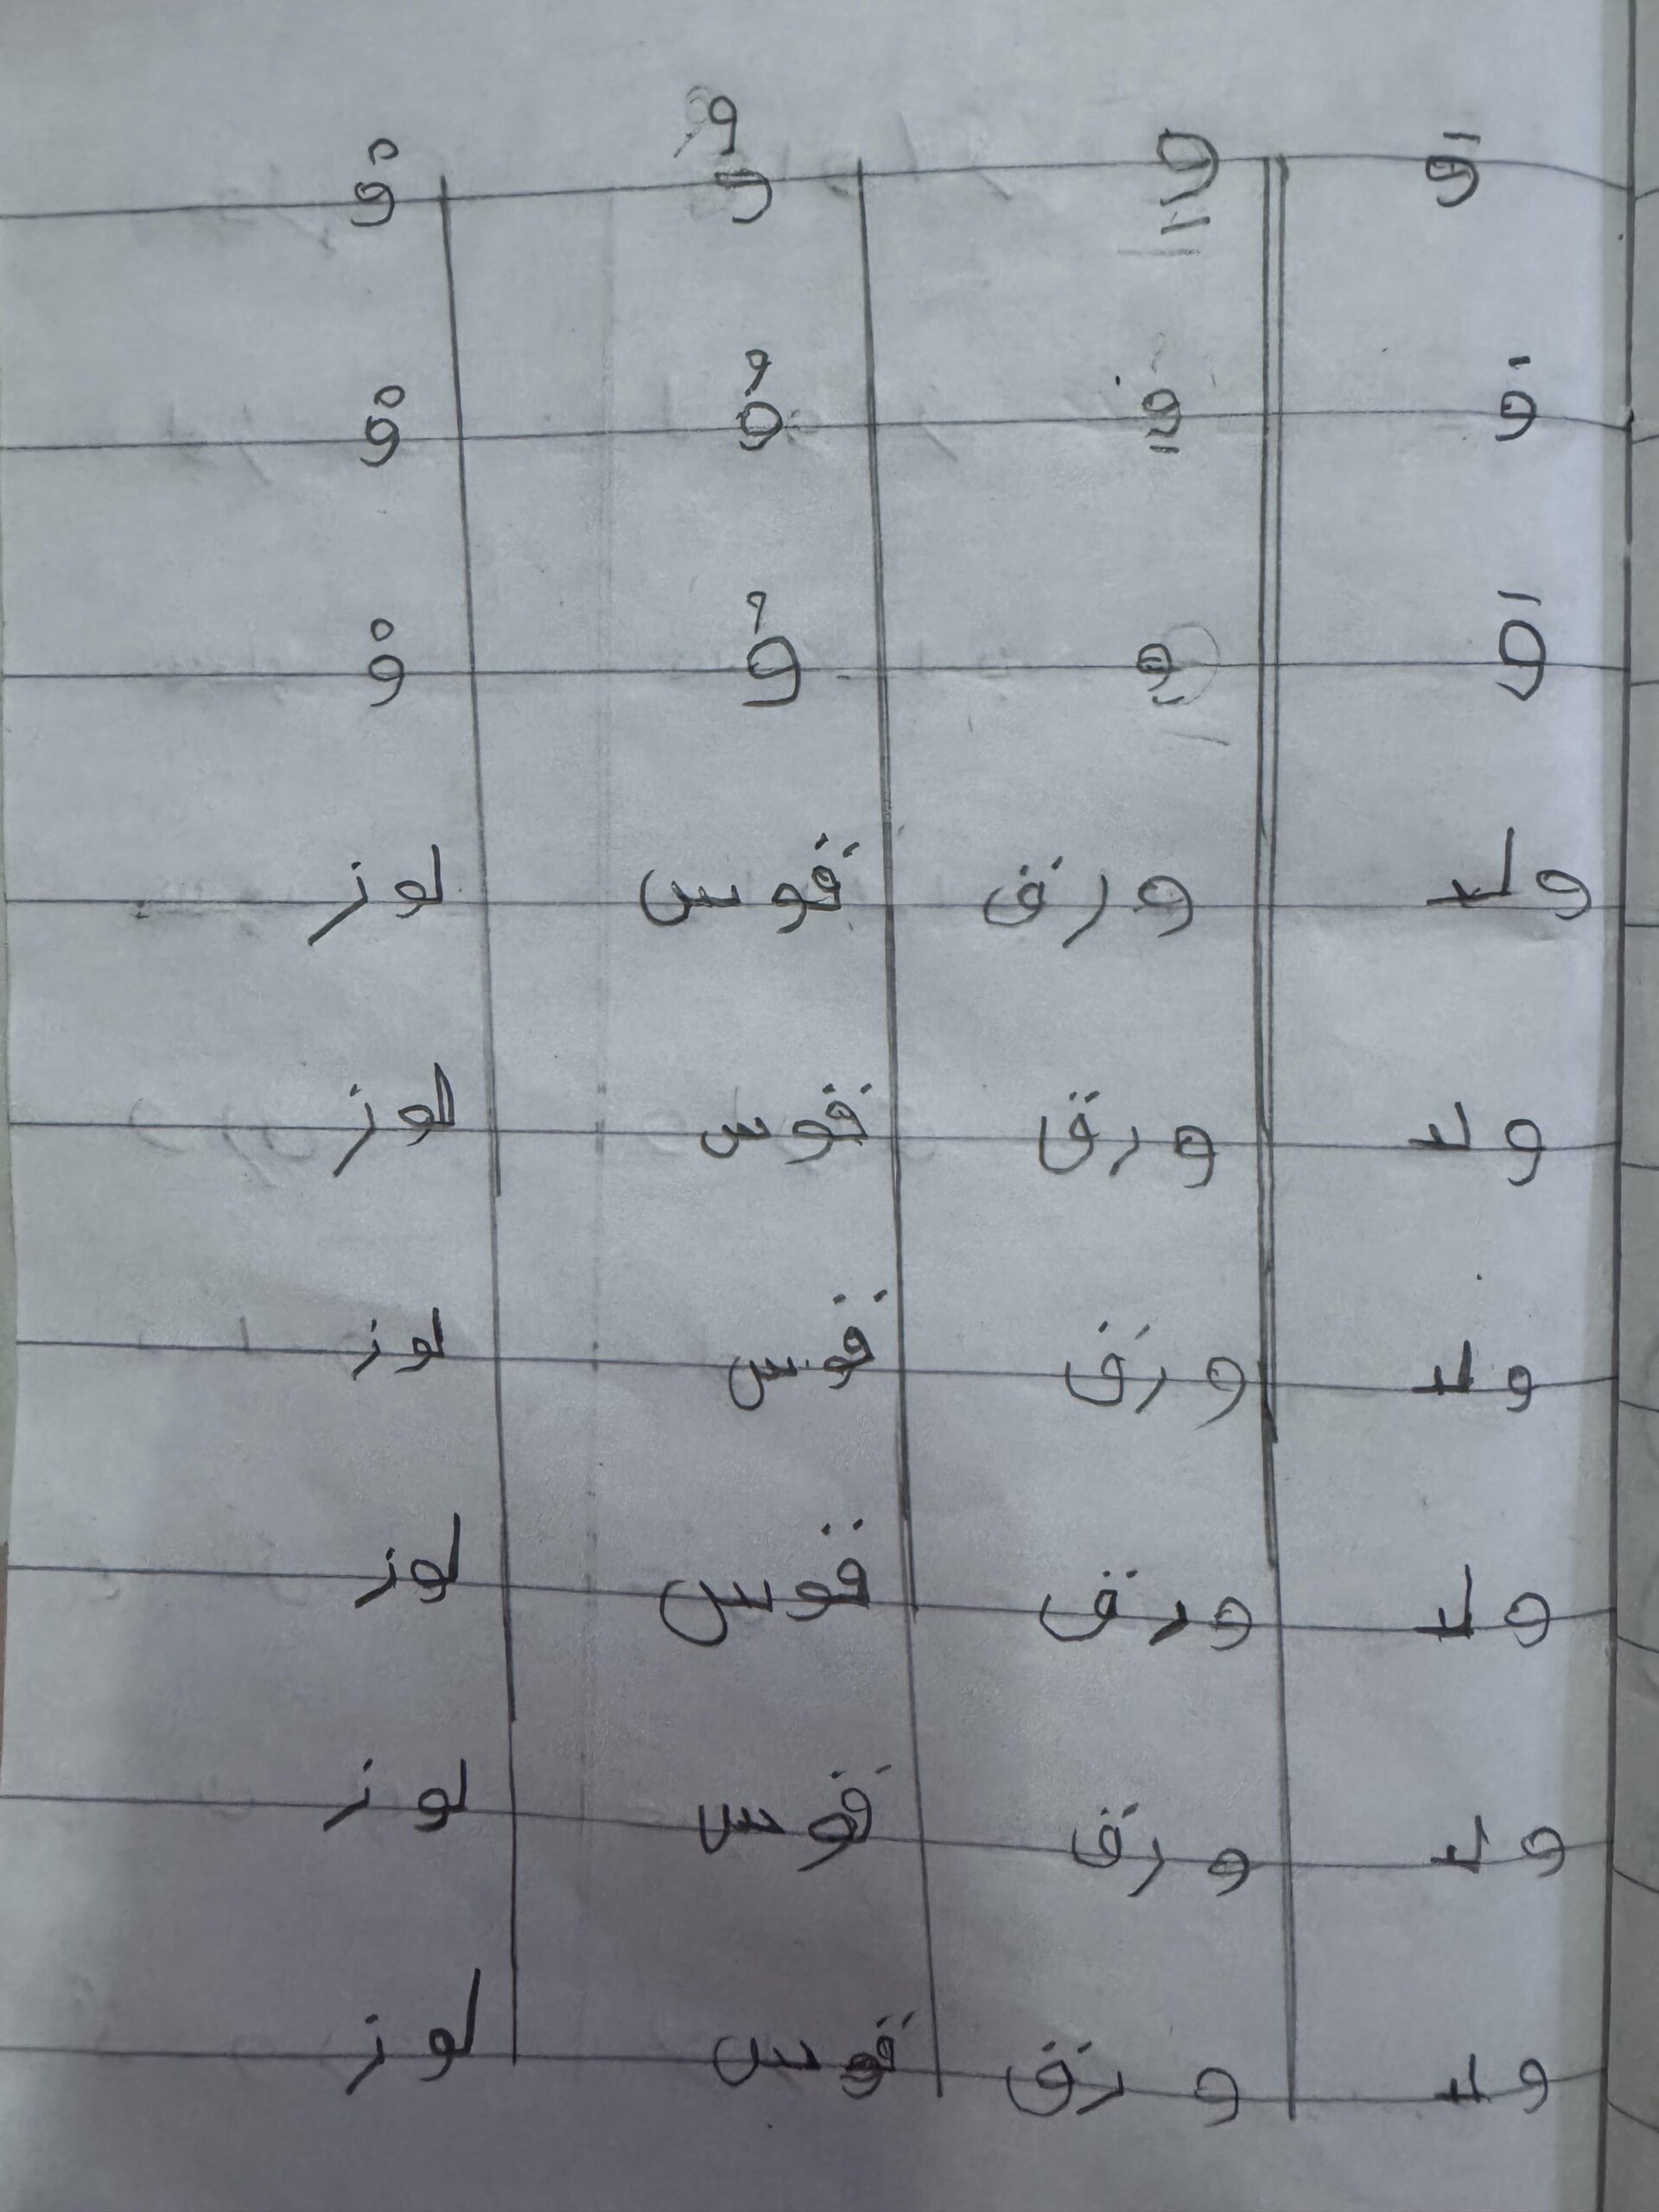 وَ وِ وُ وْ
وَ وِ وُ وْ
وَ وِ وُ وْ
ولد ورق قوس لوز
ولد ورق قوس لوز
ولد ورق قوس لوز
ولد ورق قوس لوز
ولد ورق قوس لوز
ولد ورق قوس لوز